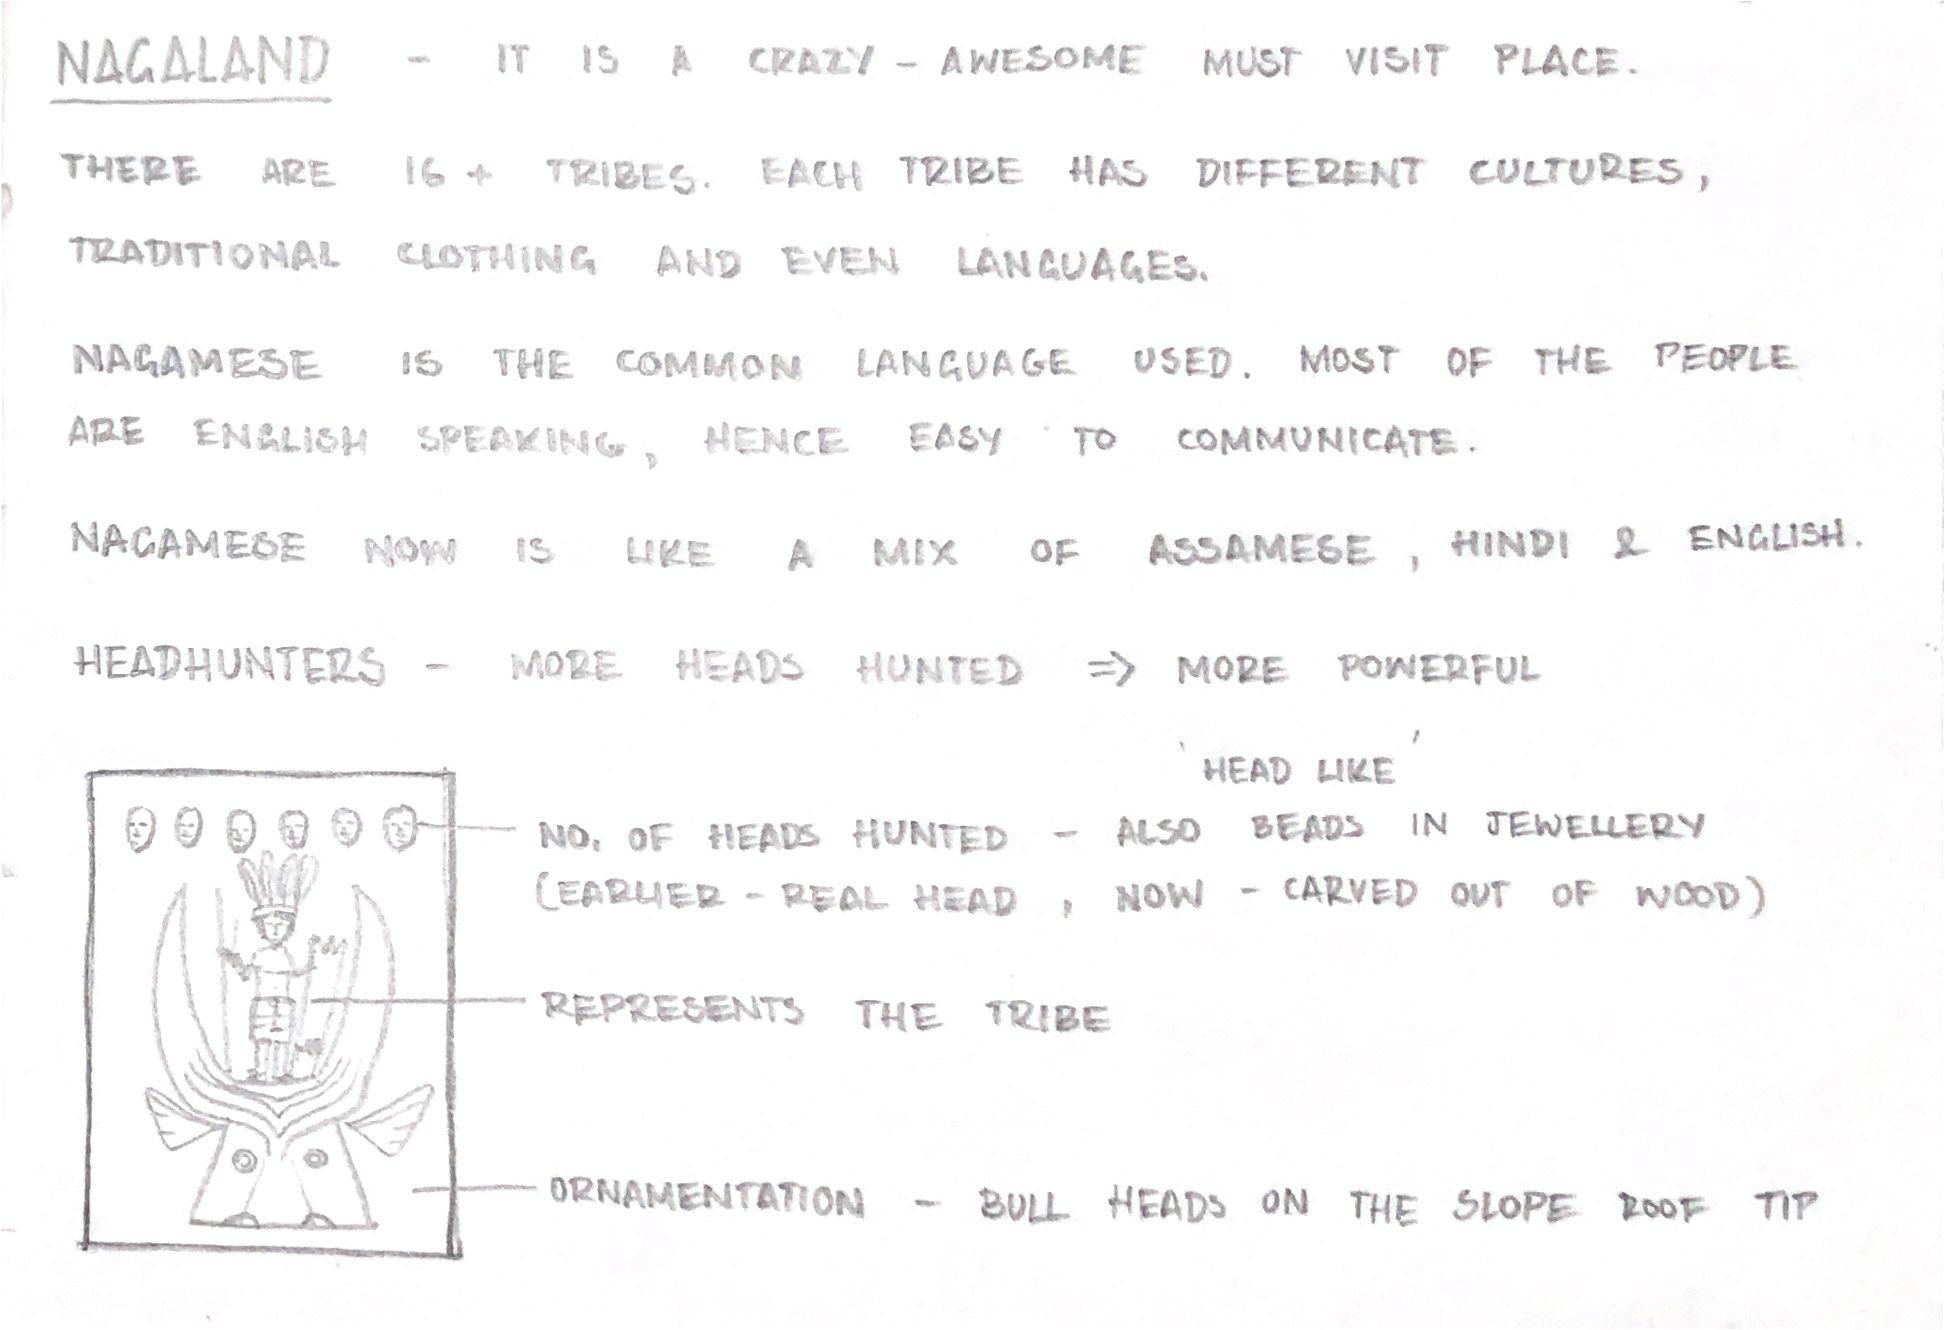 NAGALAND - IT IS A CRAZY - AWESOME MUST VISIT PLACE.
THERE ARE 16 + TRIBES. EACH TRIBE HAS DIFFERENT CULTURES,
TRADITIONAL CLOTHING AND EVEN LANGUAGES.
NAGAMESE IS THE COMMON LANGUAGE USED. MOST OF THE PEOPLE
ARE ENGLISH SPEAKING, HENCE EASY TO COMMUNICATE.
NAGAMESE NOW IS LIKE A MIX OF ASSAMESE, HINDI & ENGLISH.
HEADHUNTERS - MORE HEADS HUNTED => MORE POWERFUL
'HEAD LIKE'
NO. OF HEADS HUNTED - ALSO BEADS IN JEWELLERY
(EARLIER - REAL HEAD, NOW - CARVED OUT OF WOOD)
REPRESENTS THE TRIBE
ORNAMENTATION - BULL HEADS ON THE SLOPE ROOF TIP